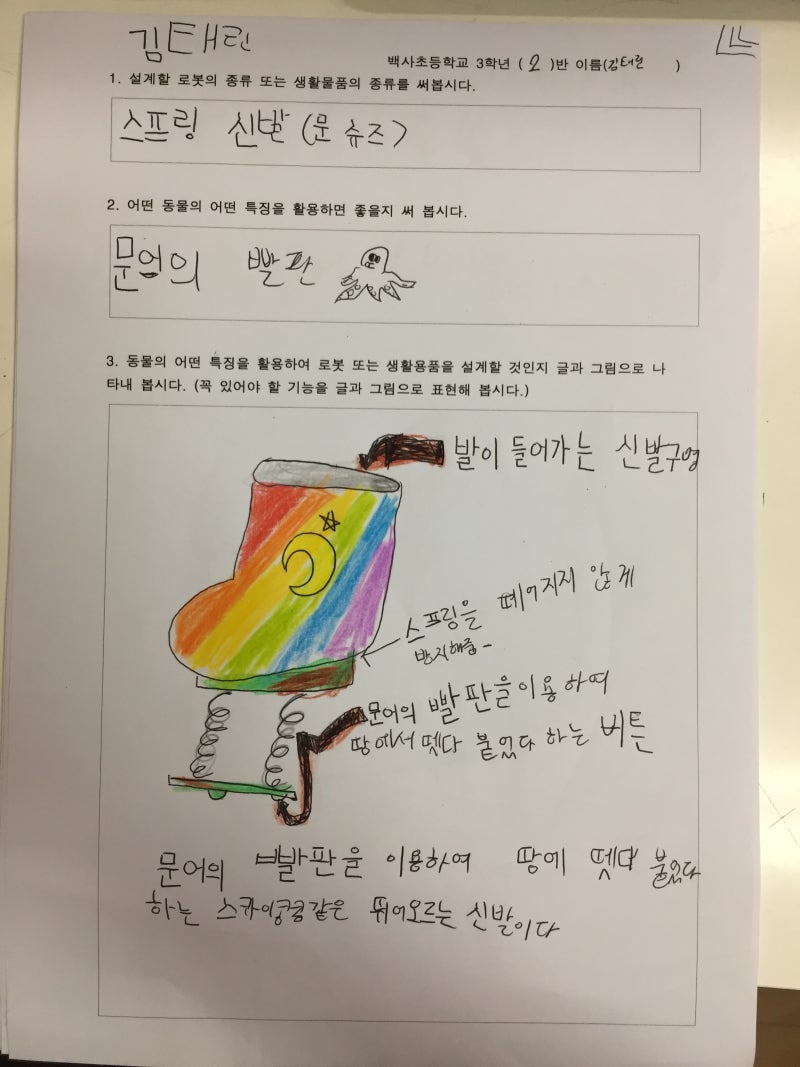 김태린
백사초등학교 3학년 ( 2 )반 이름(김태린 )
1. 설계할 로봇의 종류 또는 생활물품의 종류를 써봅시다.
스프링 신발 (문 슈즈)
2. 어떤 동물의 어떤 특징을 활용하면 좋을지 써 봅시다.
문어의 빨판
3. 동물의 어떤 특징을 활용하여 로봇 또는 생활용품을 설계할 것인지 글과 그림으로 나
타내 봅시다. (꼭 있어야 할 기능을 글과 그림으로 표현해 봅시다.)
발이 들어가는 신발구멍
스프링을 떼어지지 않게
방지해줌-
문어의 빨판을 이용하여
땅에서 뗏다 붙었다 하는 버튼
문어의 빨판을 이용하여 땅에 뗏다 붙었다
하는 스카이콩콩같은 뛰어오르는 신발이다